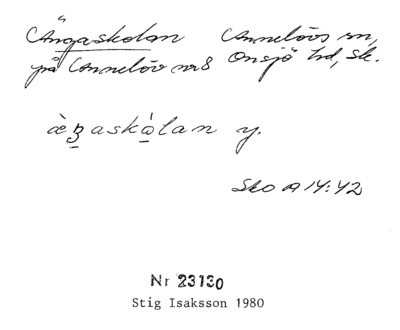 Ängaskolan Annelövs sn,
på Annelöv nr8 Onsjö hd, Sk.
àŋaskòlan y.
Sko A 14:42
Nr 23130
Stig Isaksson 1980